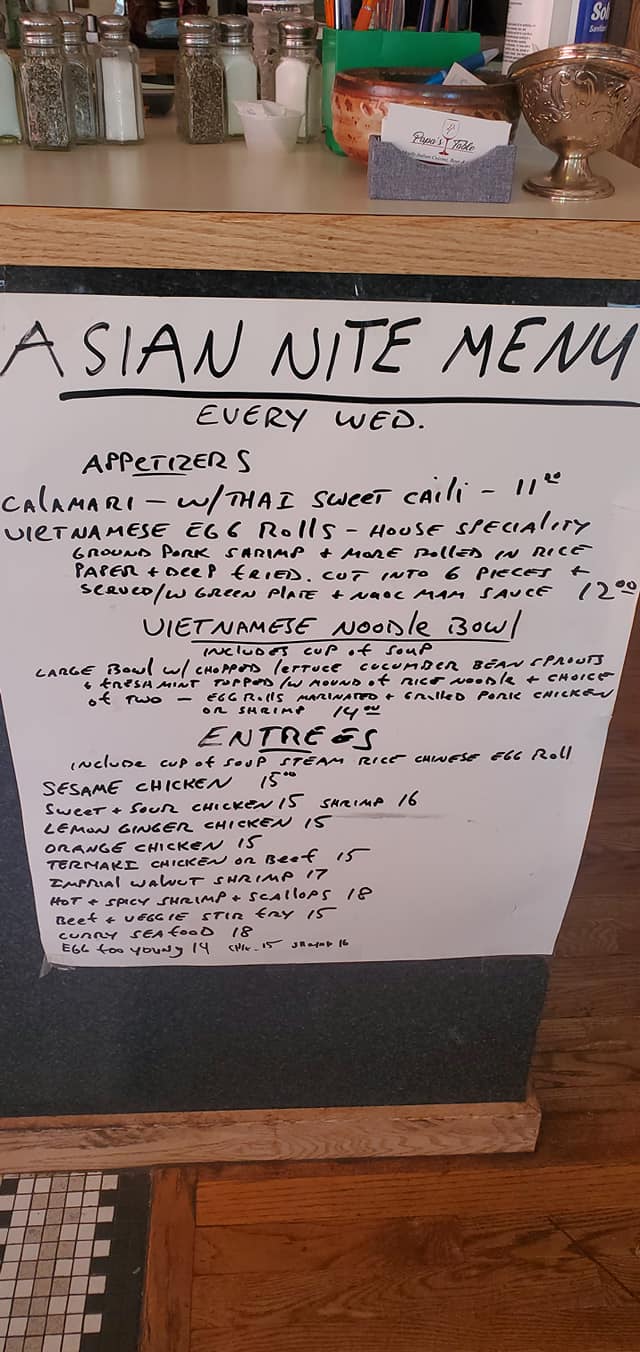 Sol
Papa's Table
Family Italian Cuisine,
ASIAN NITE MENU
EVERY WED.
APPETIZERS
CALAMARI - W/THAI SWEET CAILI - 11⁰⁰
VIETNAMESE EGG ROLLS - HOUSE SPECIALITY
GROUND PORK SHRIMP + MORE ROLLED IN RICE
PAPER + DEEP FRIED. CUT INTO 6 PIECES +
SERVED/W GREEN PLATE + NUOC MAM SAUCE 12⁰⁰
VIETNAMESE NOODLE BOWL
INCLUDES CUP OF SOUP
LARGE BOWL W/ CHOPPED LETTUCE CUCUMBER BEAN SPROUTS
+ FRESH MINT TOPPED /W MOUND OF RICE NOODLE + CHOICE
OF TWO - EGG ROLLS MARINATED + GRILLED PORK CHICKEN
OR SHRIMP 14⁰⁰
ENTREES
INCLUDE CUP OF SOUP STEAM RICE CHINESE EGG ROLL
SESAME CHICKEN 15⁰⁰
SWEET + SOUR CHICKEN 15 SHRIMP 16
LEMON GINGER CHICKEN 15
ORANGE CHICKEN 15
TERMAKI CHICKEN OR BEEF 15
IMPRIAL WALNUT SHRIMP 17
HOT + SPICY SHRIMP + SCALLOPS 18
BEEF + VEGGIE STIR FRY 15
CURRY SEAFOOD 18
EGG FOO YOUNG 14 CHIK. 15 SHRIMP 16